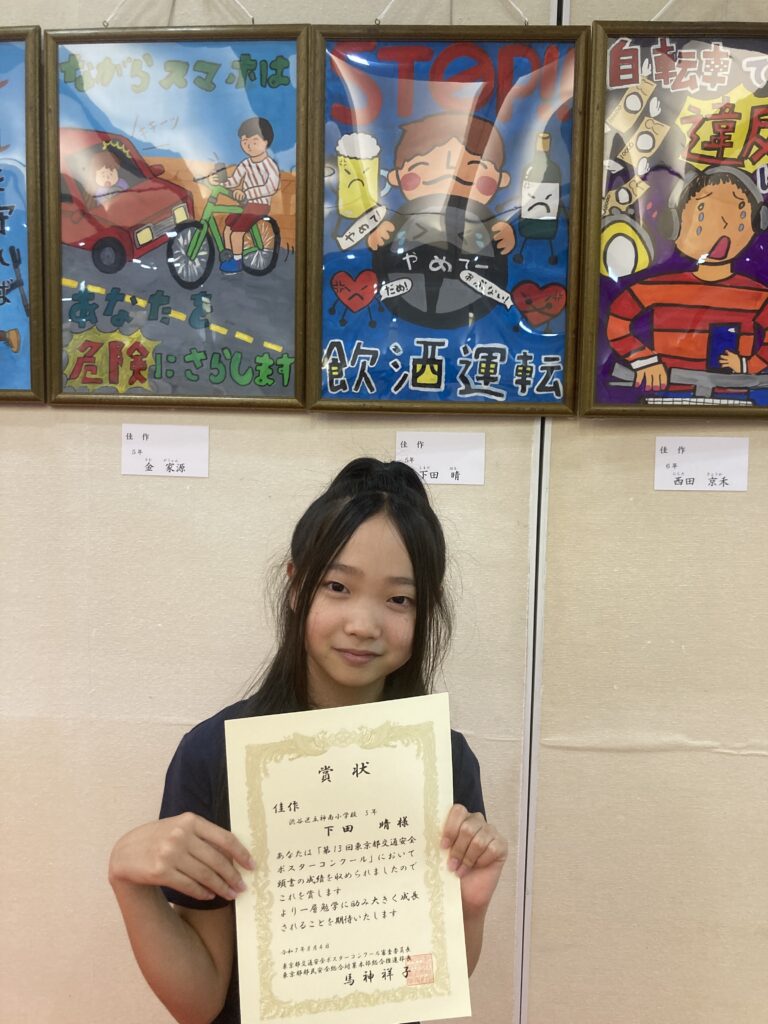 ながらスマホは
あなたを
危険にさらします
STOP!!
やめて!
やめてー
だめ!
あぶない!
飲酒運転
自転車で
違反
佳 作
5年
金 家源
佳 作
5年
しもだ はる
下田 晴
佳 作
6年
にしだ きょうか
西田 京禾
賞 状
佳作
渋谷区立神南小学校 5年
下田 晴 様
あなたは「第13回東京都交通安全
ポスターコンクール」において
頭書の成績を収められましたので
これを賞します
より一層勉学に励み大きく成長
されることを期待いたします
令和7年8月4日
東京都交通安全ポスターコンクール審査委員長
東京都都民安全総合対策本部総合推進部長
馬神 祥子